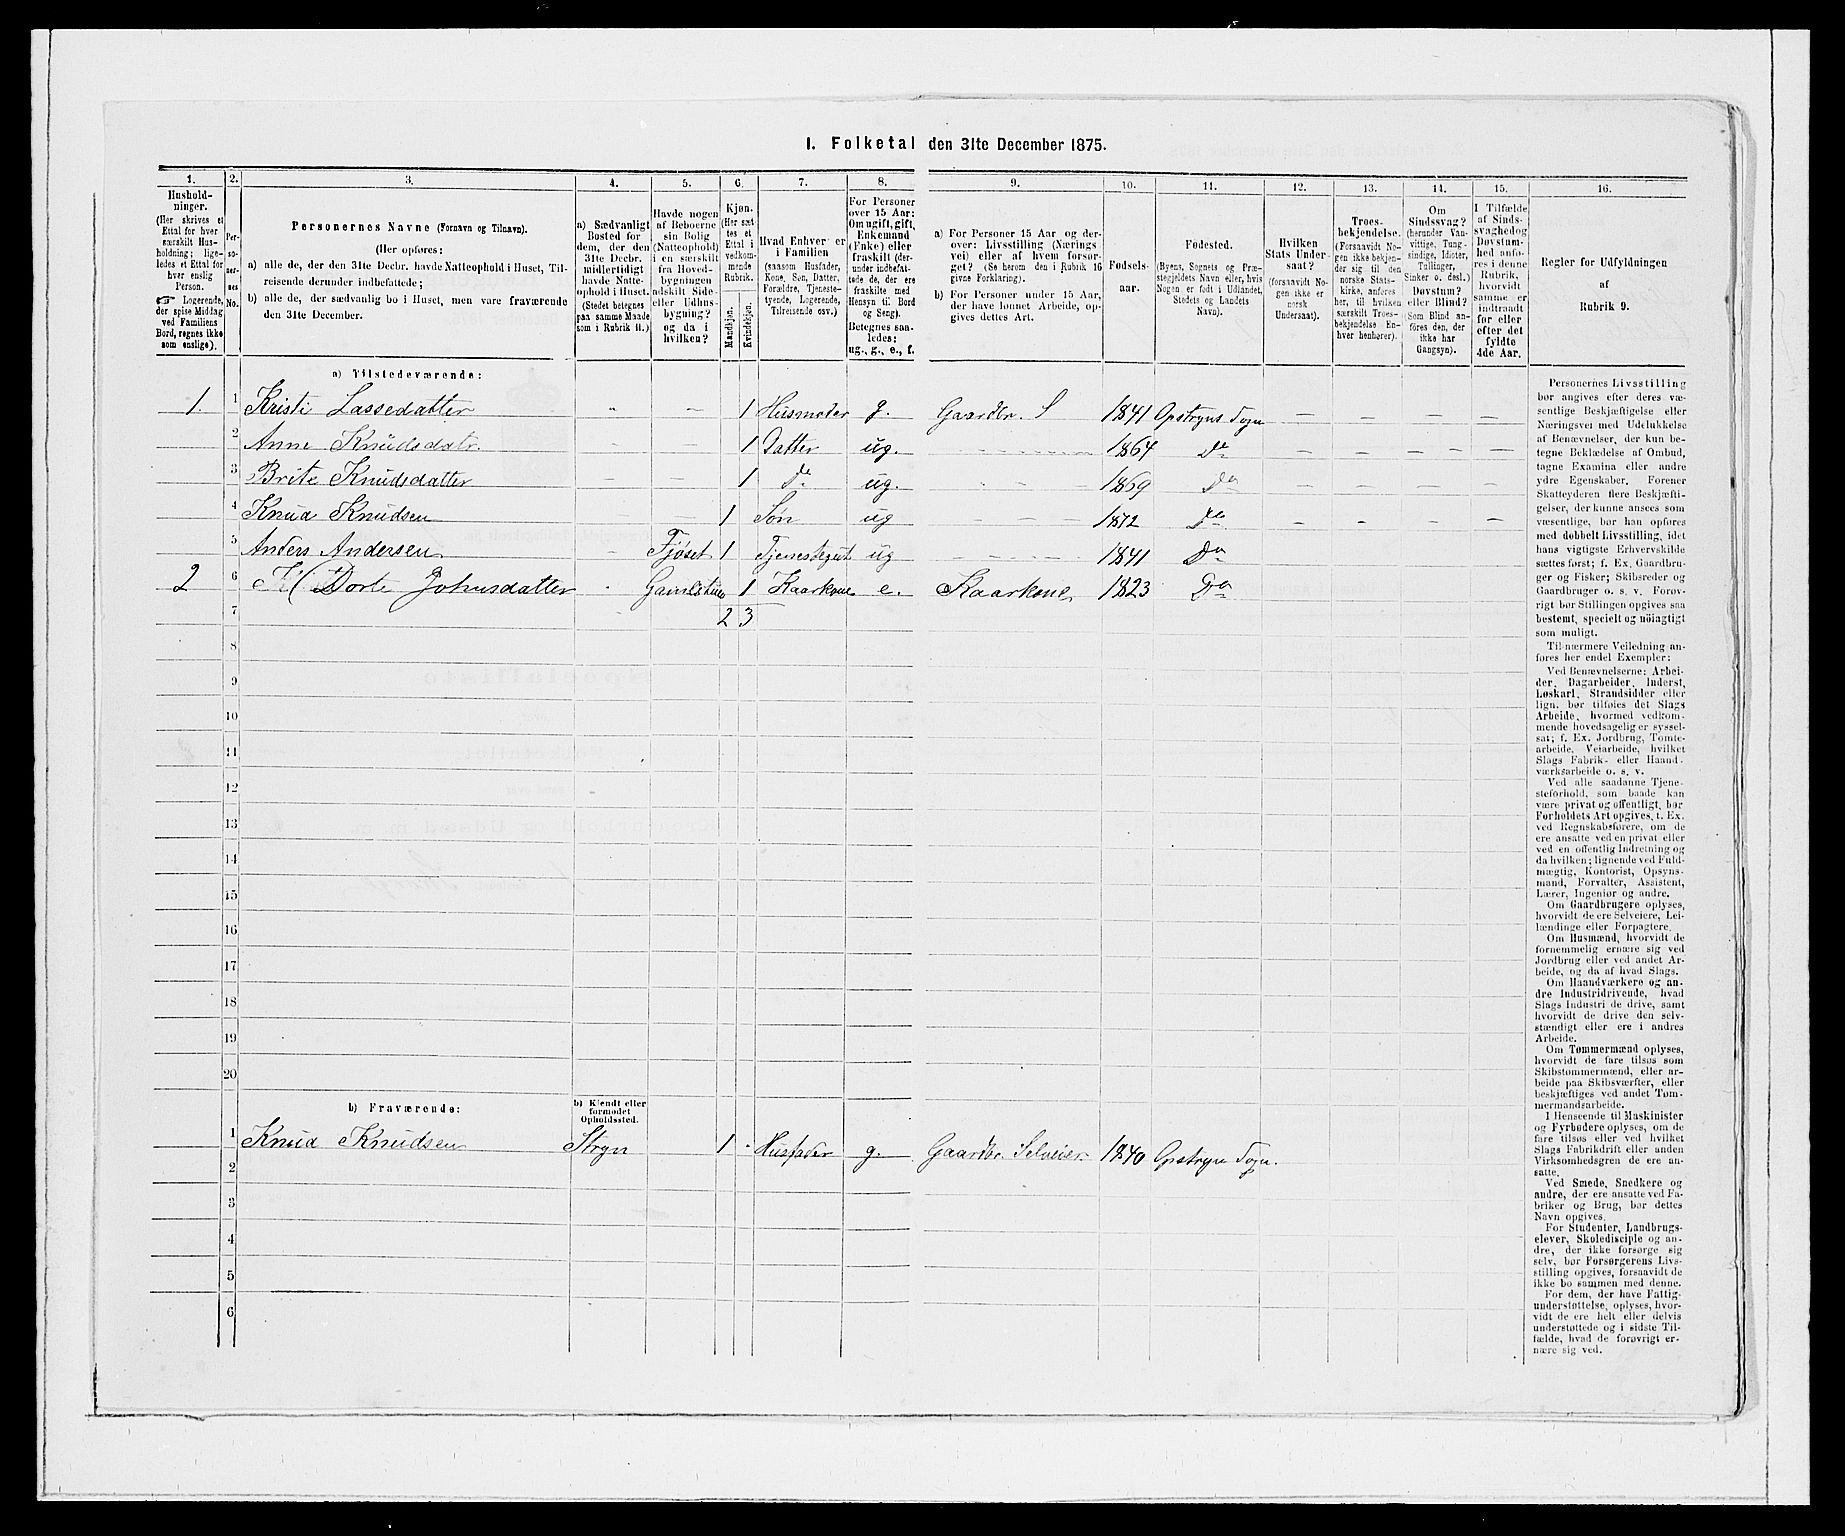 I. Folketal den 31te December 1875.
1. 2. 3. 4. 5. 6. 7. 8. 9. 10. 11. 12. 13. 14. 15. 16.
Hushold-
ninger.
(Her skrives et
Ettal for hver
særskilt Hus-
holdning; lige-
ledes et Ettal for
hver enslig
Person.
☞ Logerende,
der spise Middag
ved Familiens
Bord, regnes ikke
som enslige).
Per-
so-
ner-
nes
No.
Personernes Navne (Fornavn og Tilnavn).
(Her opføres:
a) alle de, der den 31te Decbr. havde Natteophold i Huset, Til-
reisende derunder indbefattede;
b) alle de, der sædvanlig bo i Huset, men vare fraværende
den 31te December.
a) Sædvanligt
Bosted for
dem, der den
31te Decbr.
midlertidigt
havde Natte-
ophold i Huset.
(Stedet betegnes
paa samme Maade
som i Rubrik 11.)
Havde nogen
af Beboerne
sin Bolig
(Natteophold)
i en særskilt
fra Hoved-
bygningen
adskilt Side-
eller Udhus-
bygning?
og da i
hvilken?
Kjøn.
(Her sæt-
tes et
Ettal i
vedkom-
mende
Rubrik.
Mandkjøn.
Kvindekjøn.
Hvad Enhver er
i Familien
(saasom Husfader,
Kone, Søn, Datter,
Forældre, Tjeneste-
tyende, Logerende,
Tilreisende osv.)
For Personer
over 15 Aar:
Om ugift, gift,
Enkemand
(Enke) eller
fraskilt (der-
under indbefat-
tede de, der ere
fraskilte med
Hensyn til Bord
og Seng).
Betegnes saa-
ledes:
ug., g., e., f.
a) For Personer 15 Aar og der-
over: Livsstilling (Nærings-
vei) eller af hvem forsør-
get? (Se herom den i Rubrik 16
givne Forklaring).
b) For Personer under 15 Aar,
der have lønnet Arbeide, op-
gives dettes Art.
Fødsels-
aar.
Fødested.
(Byens, Sognets og Præ-
stegjeldets Navn eller, hvis
Nogen er født i Udlandet,
Stedets og Landets
Navn).
Hvilken
Stats Under-
saat?
(forsaavidt No-
gen ikke er
norsk
Undersaat).
Troes-
bekjendelse.
(Forsaavidt No-
gen ikke bekjen-
der sig til den
norske Stats-
kirke, anføres
her, til hvilken
særskilt Troes-
bekjendelse En-
hver henhører).
Om
Sindssvag?
(herunder Van-
vittige, Tung-
sindige, Idioter,
Tullinger,
Sinker o. desl.)
Døvstum?
eller Blind?
(Som Blind an-
føres den, der
ikke har
Gangsyn).
I Tilfælde
af Sinds-
svaghed og
Døvstum-
hed anfø-
res i denne
Rubrik,
hvorvidt
samme er
indtraadt
før eller
efter det
fyldte
4de Aar.
Regler for Udfyldningen
af
Rubrik 9.
a) Tilstedeværende:
1. 1 Kristi Lassedatter " — 1 Husmoder g. Gaardbr. S 1841 Opstryns Sogn — — — —
2 Anne Knudsdatr. — — 1 Datter ug. 1864 Do — — — —
3 Brite Knudsdatter — — 1 do ug. 1869 Do — — — —
4 Knud Knudsen — 1 Søn ug 1872 Do — — — —
5 Anders Andersen — Fjøset 1 Tjenestegut ug 1841 Do
2 6 Dorte Johnsdatter Gamlstue 1 Kaarkone e. Kaarkone 1823 Do
7 2 3
8
9
10
11
12
13
14
15
16
17
18
19
20
b) Fraværende:
b) Kjendt eller
formodet
Opholdssted.
1 Knud Knudsen Stryn 1 Husfader g. Gaardbr. Selveier 1840 Opstryn Sogn.
2
3
4
5
6
Personernes Livsstilling
bør angives efter deres væ-
sentlige Beskjæftigelse eller
Næringsvei med Udelukkelse
af Benævnelser, der kun be-
tegne Beklædelse af Ombud,
tagne Examina eller andre
ydre Egenskaber. Forener
Skatteyderen flere Beskjæfti-
gelser, der kunne ansees som
væsentlige, bør han opføres
med dobbelt Livsstilling, idet
hans vigtigste Erhvervskilde
sættes først; f. Ex. Gaardbru-
ger og Fisker; Skibsreder og
Gaardbruger o. s. v. Forøv-
rigt bør Stillingen opgives saa
bestemt, specielt og nøiagtigt
som muligt.
Til nærmere Veiledning an-
føres her endel Exempler:
Ved Benævnelserne: Arbei-
der, Dagarbeider, Inderst,
Løskarl, Strandsidder eller
lign. bør tilføies det Slags
Arbeide, hvormed vedkom-
mende hovedsagelig er syssel-
sat; f. Ex. Jordbrug, Tomte-
arbeide, Veiarbeide, hvilket
Slags Fabrik- eller Haand-
værksarbeide o. s. v.
Ved alle saadanne Tjene-
steforhold, som baade kan
være privat og offentligt, bør
Forholdets Art opgives, t. Ex.
ved Regnskabsførere, om de
ere ansatte ved en privat eller
ved en offentlig Indretning og
da hvilken; lignende ved Fuld-
mægtig, Kontorist, Opsyns-
mand, Forvalter, Assistent,
Lærer, Ingeniør og andre.
Om Gaardbrugere oplyses,
hvorvidt de ere Selveiere, Lei-
lændinge eller Forpagtere.
Om Husmænd, hvorvidt de
fornemmelig ernære sig ved
Jordbrug eller ved andet Ar-
beide, og da af hvad Slags.
Om Haandværkere og an-
dre Industridrivende, hvad
Slags Industri de drive, samt
hvorvidt de drive den selv-
stændigt eller ere i andres
Arbeide.
Om Tømmermænd oplyses,
hvorvidt de fare tilsøs som
Skibstømmermænd, eller ar-
beide paa Skibsværfter, eller
beskjæftiges ved andet Tøm-
mermandsarbeide.
I Henseende til Maskinister
og Fyrbødere oplyses, om de
fare tilsøs eller ved hvilket
Slags Fabrikdrift eller anden
Virksomhedsgren de ere an-
satte.
Ved Smede, Snedkere og
andre, der ere ansatte ved Fa-
briker og Brug, bør dettes
Navn opgives.
For Studenter, Landbrugs-
elever, Skoledisciple og an-
dre, der ikke forsørge sig
selv, bør Forsørgerens Livs-
stilling opgives, forsaavidt de
ikke bo sammen med denne.
For dem, der have Fattig-
understøttelse, oplyses, hvor-
vidt de ere helt eller delvis
understøttede og i sidste Til-
fælde, hvad de forøvrigt er-
nære sig ved.